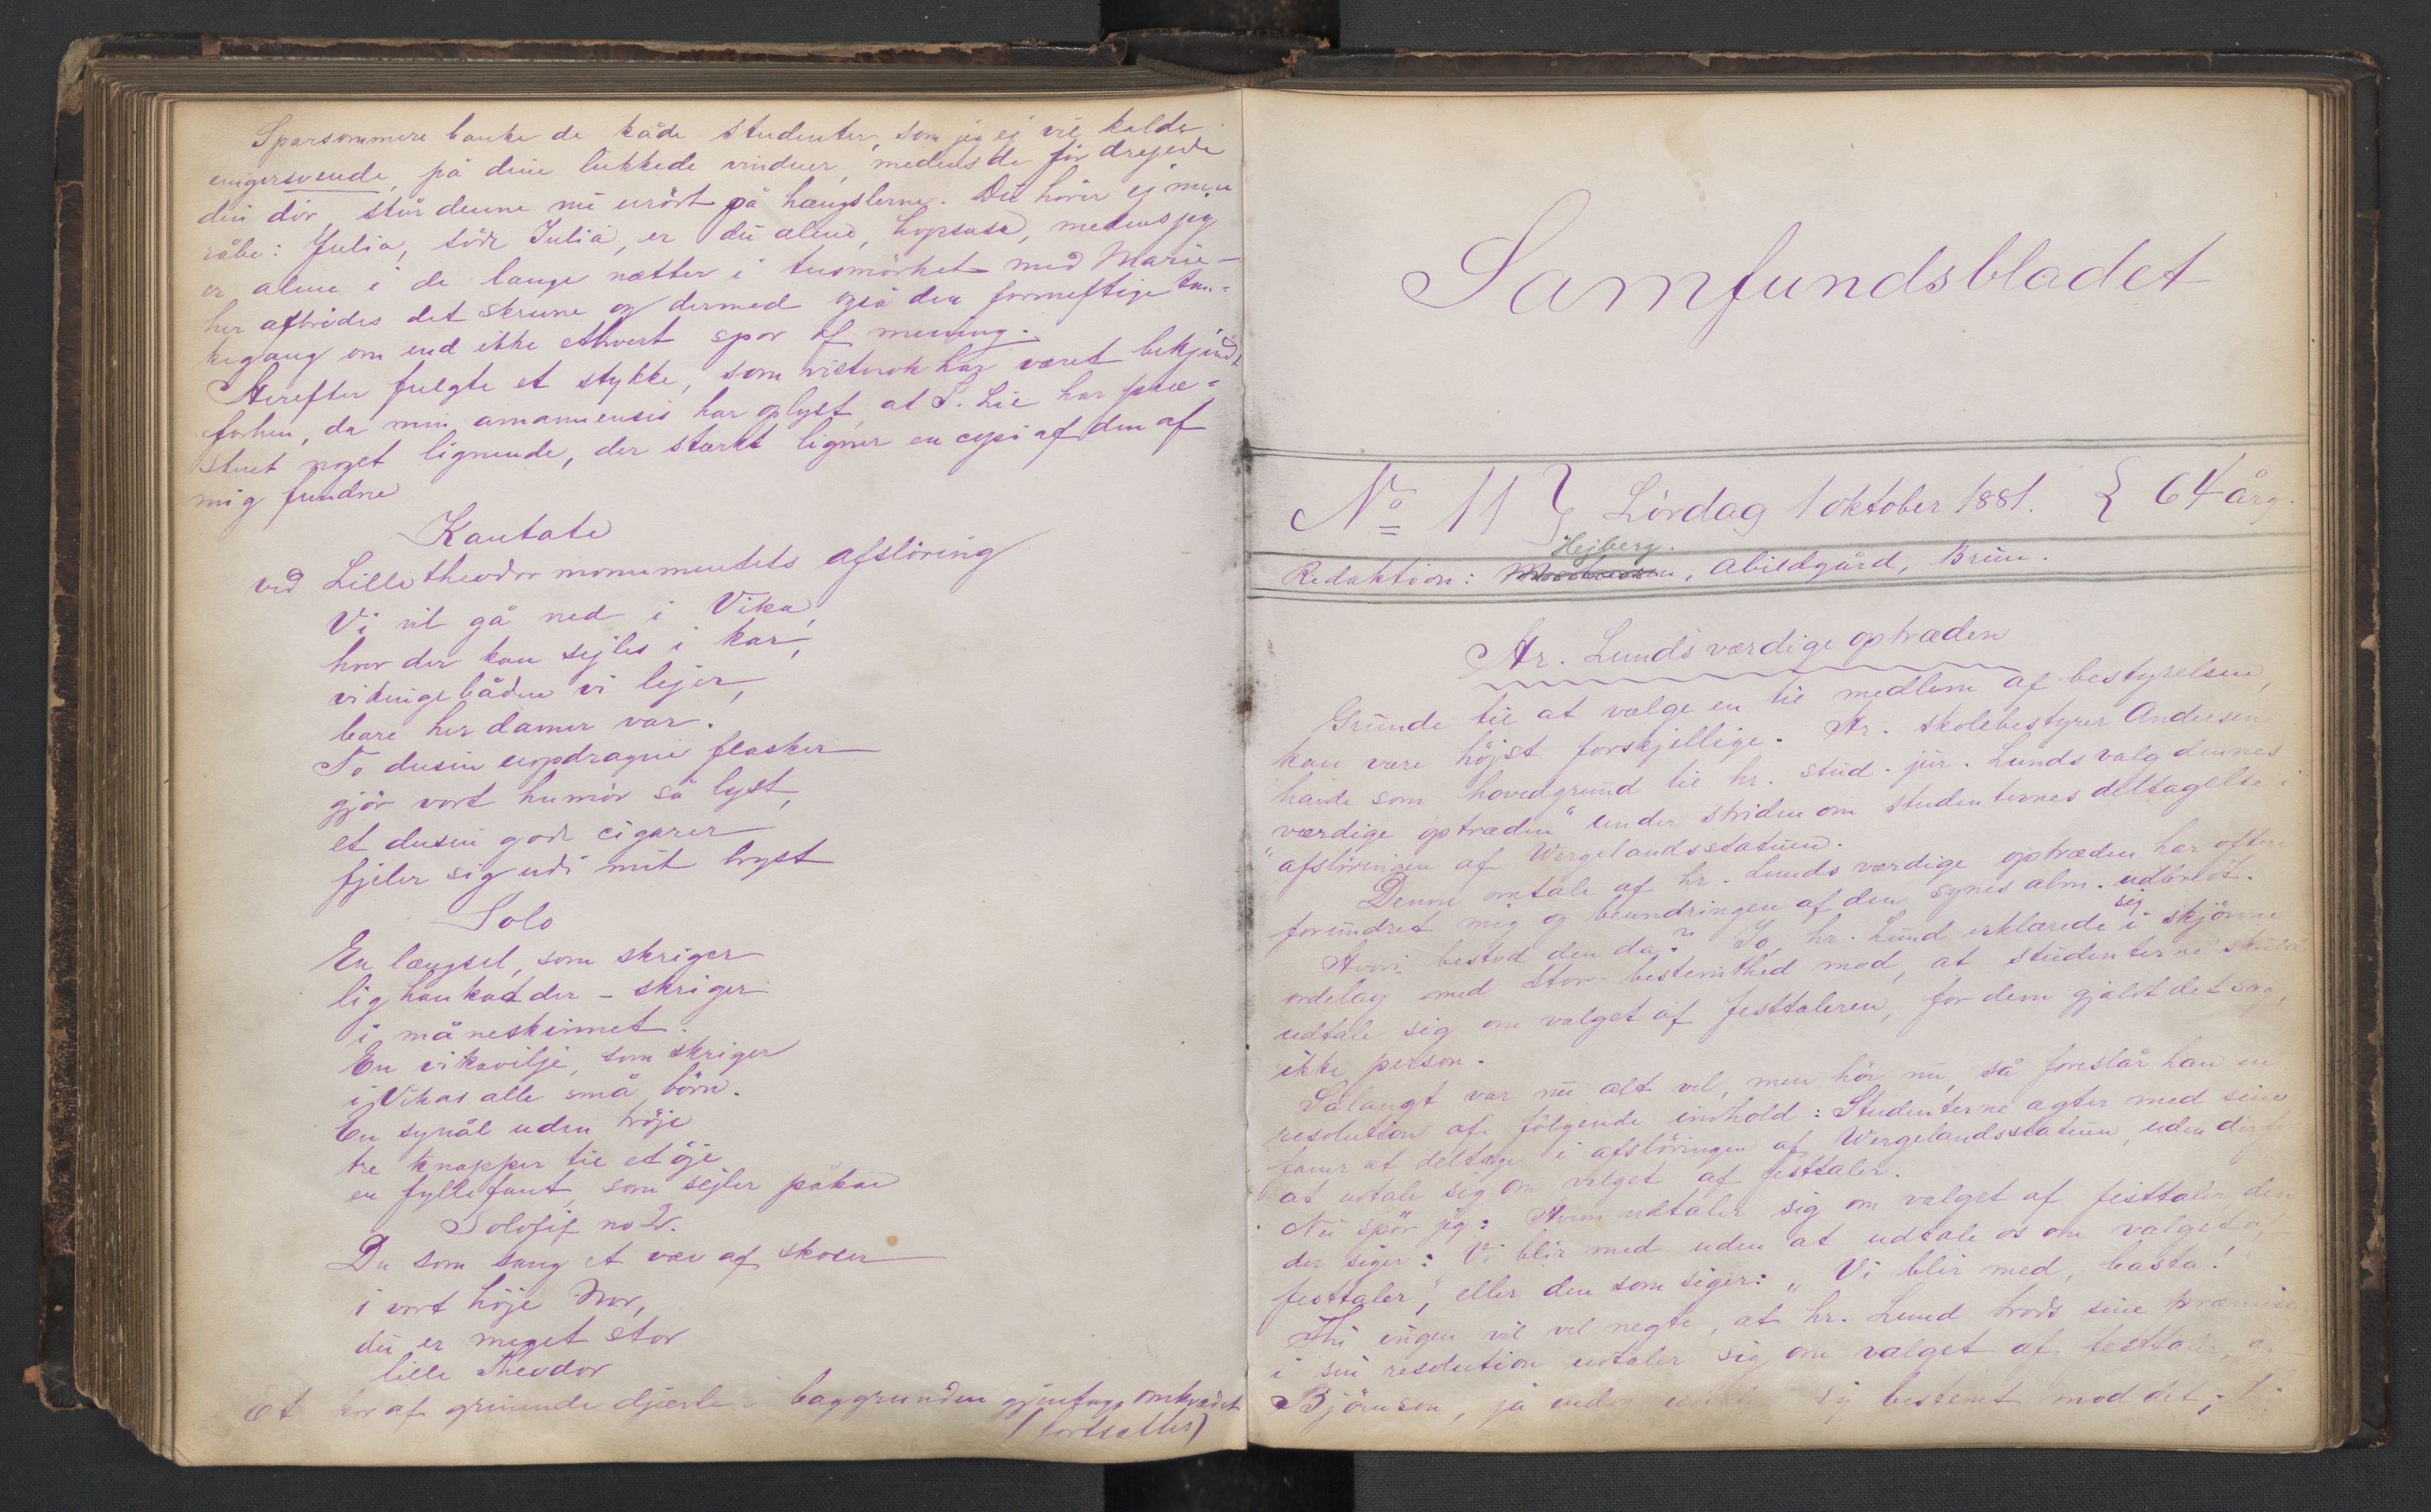 Sparsommere banke de kåde studenter, som jeg ej vil kalde
ungersvende, på dine lukkede vinduer, medens de før drejede
din dör, står denne nu urört på hængslerne. Du hörer ej min
råben: Julia, söde Julia, er du alene, hopsasa, medens jeg
er alene i de lange nætter i tusmörket med Marie –
her afbrödes det skrevne og dermed også den fornuftige tan-
kegang om end ikke ethvert spor af mening.
Herefter fulgte et stykke, som vistnok har været bekjendt
forhen, da min amanuensis har oplyst, at S. Lie har præ-
steret noget lignende, der stærkt ligner en copi af den af
mig fundne
Kantate
ved Lilletheodormonumentets afslöring
Vi vil gå ned i Vika,
hvor der kan sejles i kar,
vikingebåden vi lejer,
bare her damer var.
To dusin uopdragne flasker
gjör vort humör så lyst,
et dusin gode cigarer
fjeler sig udi mit bryst
Solo
En længsel, som skriger
lig hankat der – skriger
i måneskinnet.
En viksvilje, som skriger
i Vikas alle små börn.
En synål uden tröje
tre knapper til et öje
en fyllefant, som sejler påkar
Solofif no 2.
Du som sang et væv af skoser
i vort höje Nor,
du er meget stor
lille Theodor
Et kor af grinende djævle i baggrunden gjentage omkvædet
(fortsættes)
Samfundsbladet
No 11 } Lördag 1 oktober 1881. { 64 årg.
Hejberg.
Redaktion: , Abildgård, Bruun.
Hr. Lunds værdige optræden
Grunde til at vælge en til medlem af bestyrelsen,
kan være höjst forskjellige. Hr. skolebestyrer Andersen
havde som hovedgrund til hr. stud. jur. Lunds valg dennes
værdige optræden" under striden om studenternes deltagelse i
"afslöringen af Wergelandsstatuen.
Denne omtale af hr. Lunds værdige optræden har oftere
forundret mig og beundringen af den synes alm. udbredt.
Hvori bestod den da? Jo, hr. Lund erklærede sig i skjönne
ordelag med stor bestemthed mod, at studenterne skulde
udtale sig om valget af festtaleren, for dem gjaldt det sag,
ikke person.
Sålangt var nu alt vel, men hör nu, så foreslår han en
resolution af fölgende indhold: Studenterne agter med sine
faner at deltage i afslöringen af Wergelandsstatuen, uden derf
at udtale sig om valget af festtaler.
Nu spör jeg: Hvem udtaler sig om valget af festtaler, den
der siger: Vi blir med uden at udtale os om valget af
festtaler", eller den som siger: "Vi blir med, basta!
Thi ingen vil vel negte, at hr. Lund trods sine præmisser
i sin resolution udtaler sig om valget af festtaler,
Björnson, ja endog sig bestemt mod det;